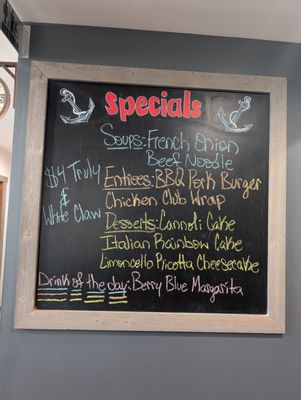 Specials
Soups: French Onion
Beef Noodle
$4 Truly
&
White Claw
Entrées: BBQ Pork Burger
Chicken Club Wrap
Desserts: Cannoli Cake
Italian Rainbow Cake
Limoncello Ricotta Cheesecake
Drink of the day: Berry Blue Margarita